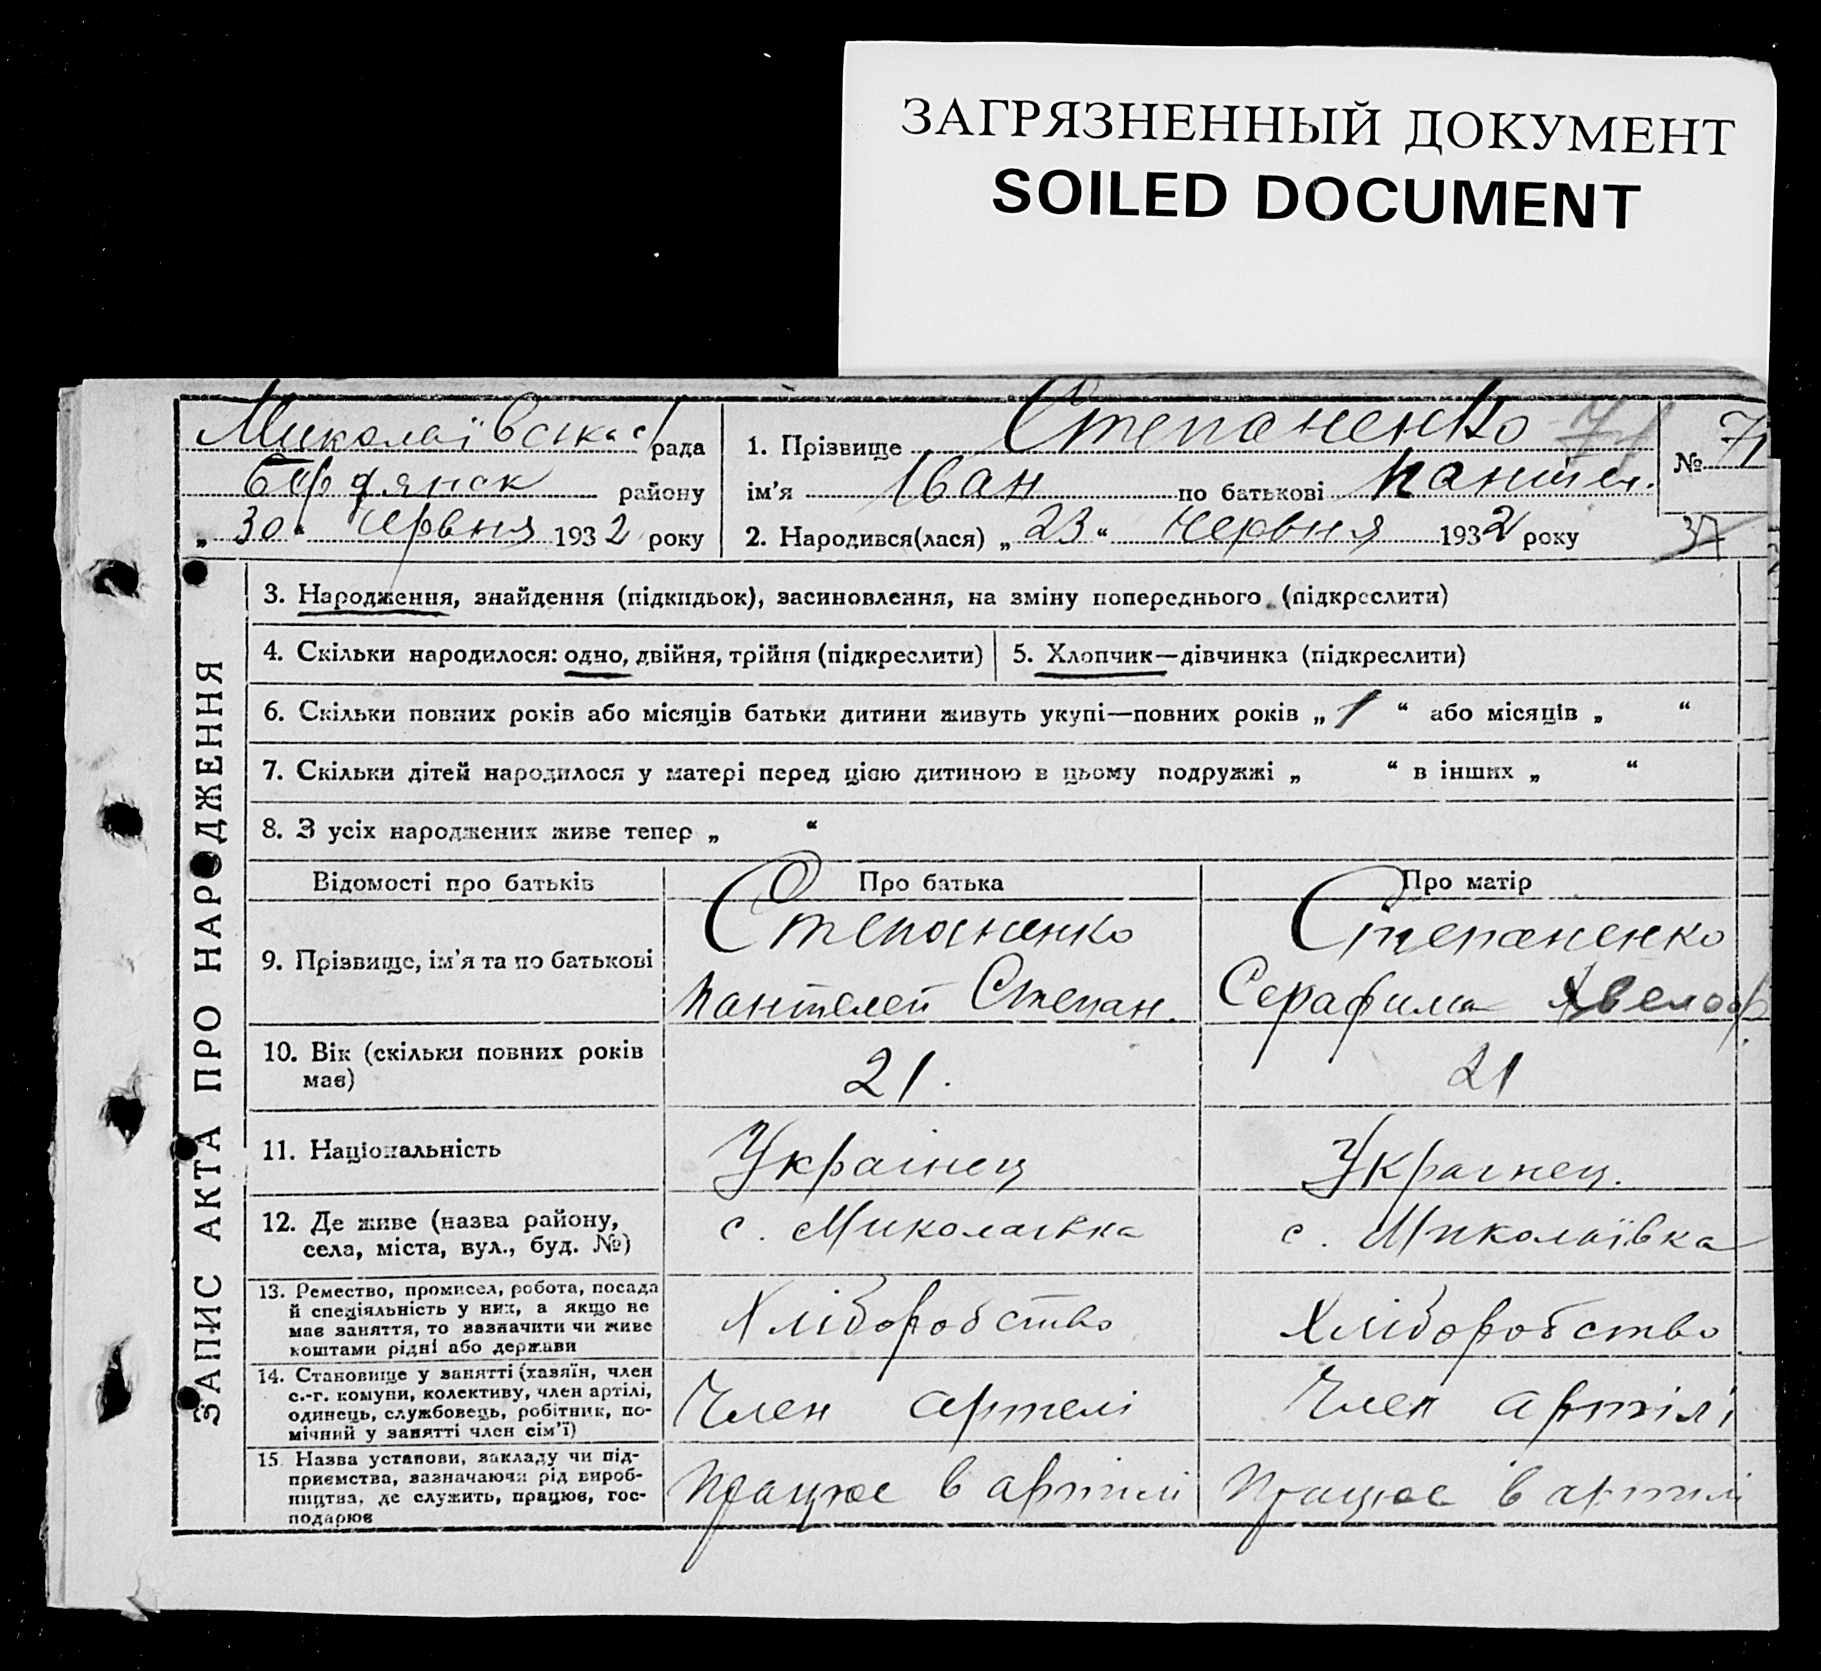 ЗАГРЯЗНЕННЫЙ ДОКУМЕНТ
SOILED DOCUMENT
Миколаївська с/рада
Бердянск району
„30“ червня 1932 року
1. Прізвище Степаненко 71
ім'я Іван по батькові Пантел.
2. Народився(лася) „23“ Червня 1932 року
№ 71
37
ЗАПИС АКТА ПРО НАРОДЖЕННЯ
3. Народження, знайдення (підкидьок), засиновлення, на зміну попереднього (підкреслити)
4. Скільки народилося: одно, двійня, трійня (підкреслити)
5. Хлопчик—дівчинка (підкреслити)
6. Скільки повних років або місяців батьки дитини живуть укупі—повних років „1“ або місяців „ “
7. Скільки дітей народилося у матері перед цією дитиною в цьому подружжі „ “ в інших „ “
8. З усіх народжених живе тепер „ “
Відомості про батьків
Про батька
Про матір
9. Прізвище, ім'я та по батькові
Степаненко
Пантелей Степан.
Степаненко
Серафима
10. Вік (скільки повних років
має)
21.
21
11. Національність
Украінец
Украінец.
12. Де живе (назва району,
села, міста, вул., буд. №)
с. Миколаівка
с. Миколаївка
13. Ремество, промисел, робота, посада
й спеціяльність у них, а якщо не
має заняття, то зазначити чи живе
коштами рідні або держави
Хліборобство
Хліборобство
14. Становище у занятті (хазяїн, член
с.-г. комуни, колективу, член артілі,
одинець, службовець, робітник, по-
мічний у занятті член сім'ї)
Член артелі
Член артілі
15. Назва установи, закладу чи під-
приємства, зазначаючи рід вироб-
ництва, де служить, працює, гос-
подарює
Працює в артілі
Працює в артілі